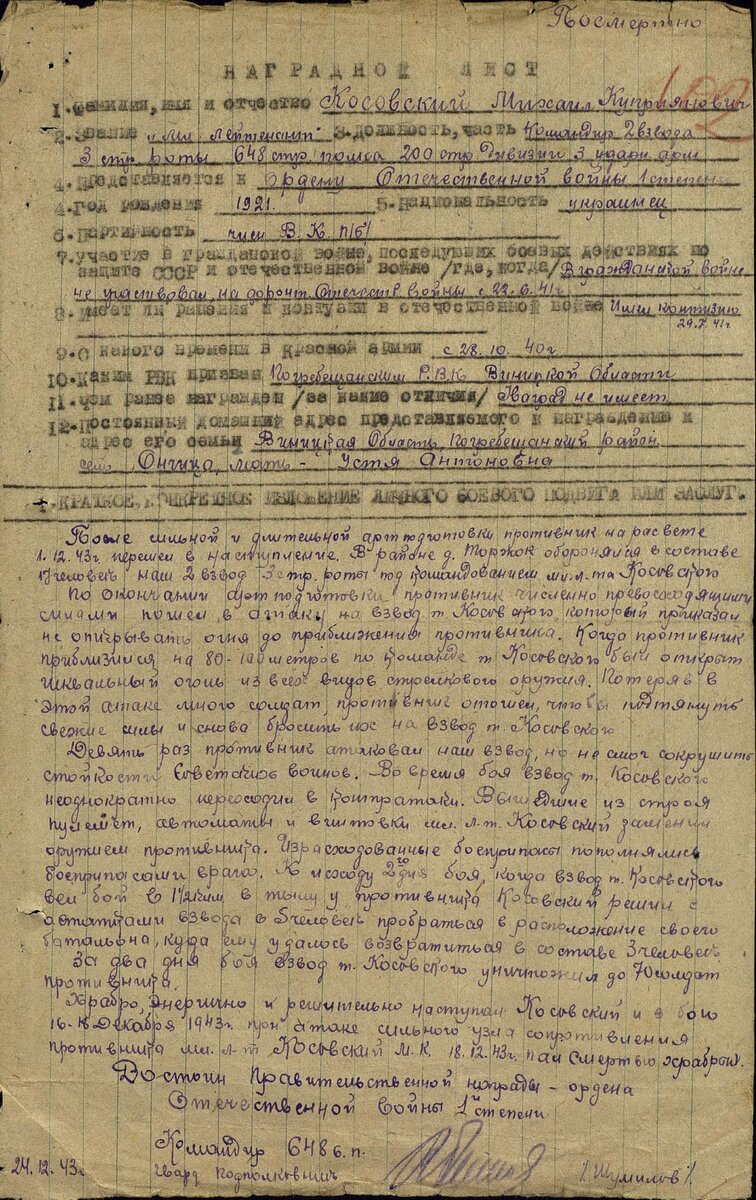 Посмертно
НАГРАДНОЙ ЛИСТ
1. Фамилия, имя и отчество Косовский Михаил Куприянович
2. Звание "Мл лейтенант" 3. Должность, часть Командир 2 взвода
3 стр. роты 648 стр. полка 200 стр. Дивизии 3 ударн. арм
4. Представляется к Ордену Отечественной войны 1 степени
4. Год рождения 1921. 5. Национальность украинец
6. Партийность член В.К.П/б/
7. Участие в гражданской войне, последующих боевых действиях по
защите СССР и отечественной войне /где, когда/ В гражданской войне
не участвовал, на фронт. Отечеств войны с 22.6.41г.
8. Имеет ли ранения и контузии в отечественной войне Имел контузию
29.7.41г
9. С какого времени в Красной армии с 28.10.40г
10. Каким РВК призван Погребещанским Р.В.К Виницкой Области
11. Чем ранее награжден /за какие отличия/ Наград не имеет
12. Постоянный домашний адрес представляемого к награждению и
адрес его семьи Виницкая Область, Погребещанский район
село Очитца, мать - Устя Антоновна
1. КРАТКОЕ, КОНКРЕТНОЕ ИЗЛОЖЕНИЕ ЛИЧНОГО БОЕВОГО ПОДВИГА ИЛИ ЗАСЛУГ.
После сильной и длительной артподготовки противник на расвете
1.12.43г. перешел в наступление. В районе д. Торжок оборонялся в составе
17 человек наш 2 взвод 3 стр. роты под командованием мл. л-та Косовского
По окончании артподготовки противник численно превосходящими
силами пошел в атаку на взвод т. Косовского, который приказал
не открывать огня до приближения противника. Когда противник
приблизился на 80-100 метров по команде т. Косовского был открыт
шквальный огонь из всех видов стрелкового оружия. Потеряв в
этой атаке много солдат, противник отошел, чтобы подтянуть
свежие силы и снова бросить их на взвод т. Косовского
Девять раз противник атаковал наш взвод, но не смог сокрушить
стойкости Советских воинов. Во время боя взвод т. Косовского
неоднократно переходил в контратаки. Вышедшие из строя
пулемет, автоматы и винтовки мл. л-т. Косовский заменил
оружием противника. Израсходованные боеприпасы пополнялись
боеприпасами врага. К исходу 2го дня боя, когда взвод т. Косовского
вел бой в 1½ клм. в тылу у противника Косовский решил с
остатками взвода в 5 человек пробраться в расположение своего
батальона, куда ему удалось возвратиться в составе 3 человек.
За два дня боя взвод т. Косовского уничтожил до 70 солдат
противника.
Храбро, энергично и решительно наступал Косовский и в бою
16-18 Декабря 1943г. при атаке сильного узла сопротивления
противника мл. л-т Косовский М.К. 18.12.43г. пал смертью храбрых.
Достоин Правительственной награды - ордена
Отечественной войны 1й степени
Командир 648 с.п.
24.12.43г. гвард подполковник /Шумилов/